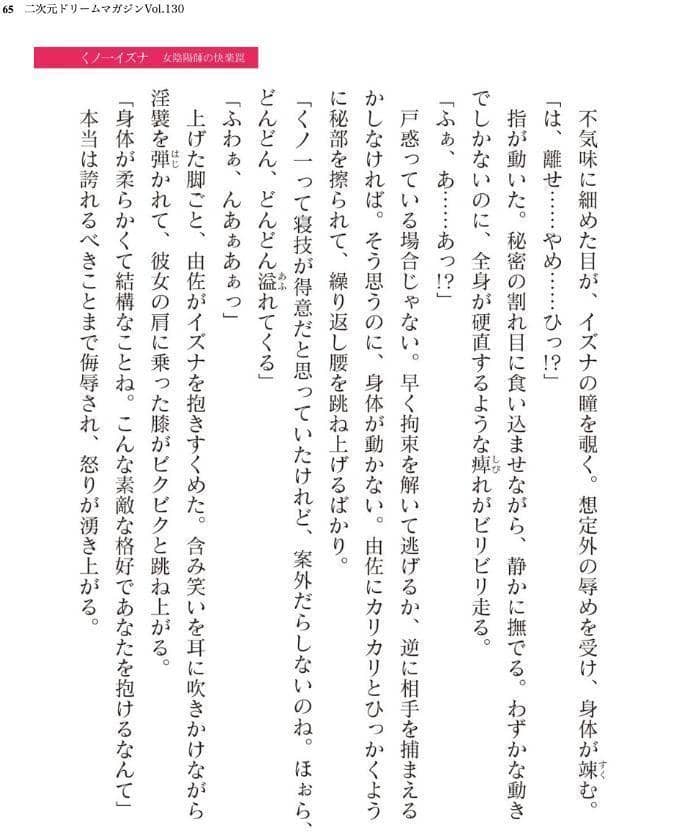 65 二次元ドリームマガジンVol.130
くノ一イズナ 女陰陽師の快楽罠
不気味に細めた目が、イズナの瞳を覗く。想定外の辱めを受け、身体が竦む。
「は、離せ……やめ……ひっ!?」
指が動いた。秘密の割れ目に食い込ませながら、静かに撫でる。わずかな動き
でしかないのに、全身が硬直するような痺れがビリビリ走る。
「ふぁ、あ……あっ!?」
戸惑っている場合じゃない。早く拘束を解いて逃げるか、逆に相手を捕まえる
かしなければ。そう思うのに、身体が動かない。由佐にカリカリとひっかくよう
に秘部を擦られて、繰り返し腰を跳ね上げるばかり。
「くノ一って寝技が得意だと思っていたけれど、案外だらしないのね。ほぉら、
どんどん、どんどん溢れてくる」
「ふわぁ、んあぁあぁっ」
上げた脚ごと、由佐がイズナを抱きすくめた。含み笑いを耳に吹きかけながら
淫襞を弾かれて、彼女の肩に乗った膝がビクビクと跳ね上がる。
「身体が柔らかくて結構なことね。こんな素敵な格好であなたを抱けるなんて」
本当は誇れるべきことまで侮辱され、怒りが湧き上がる。